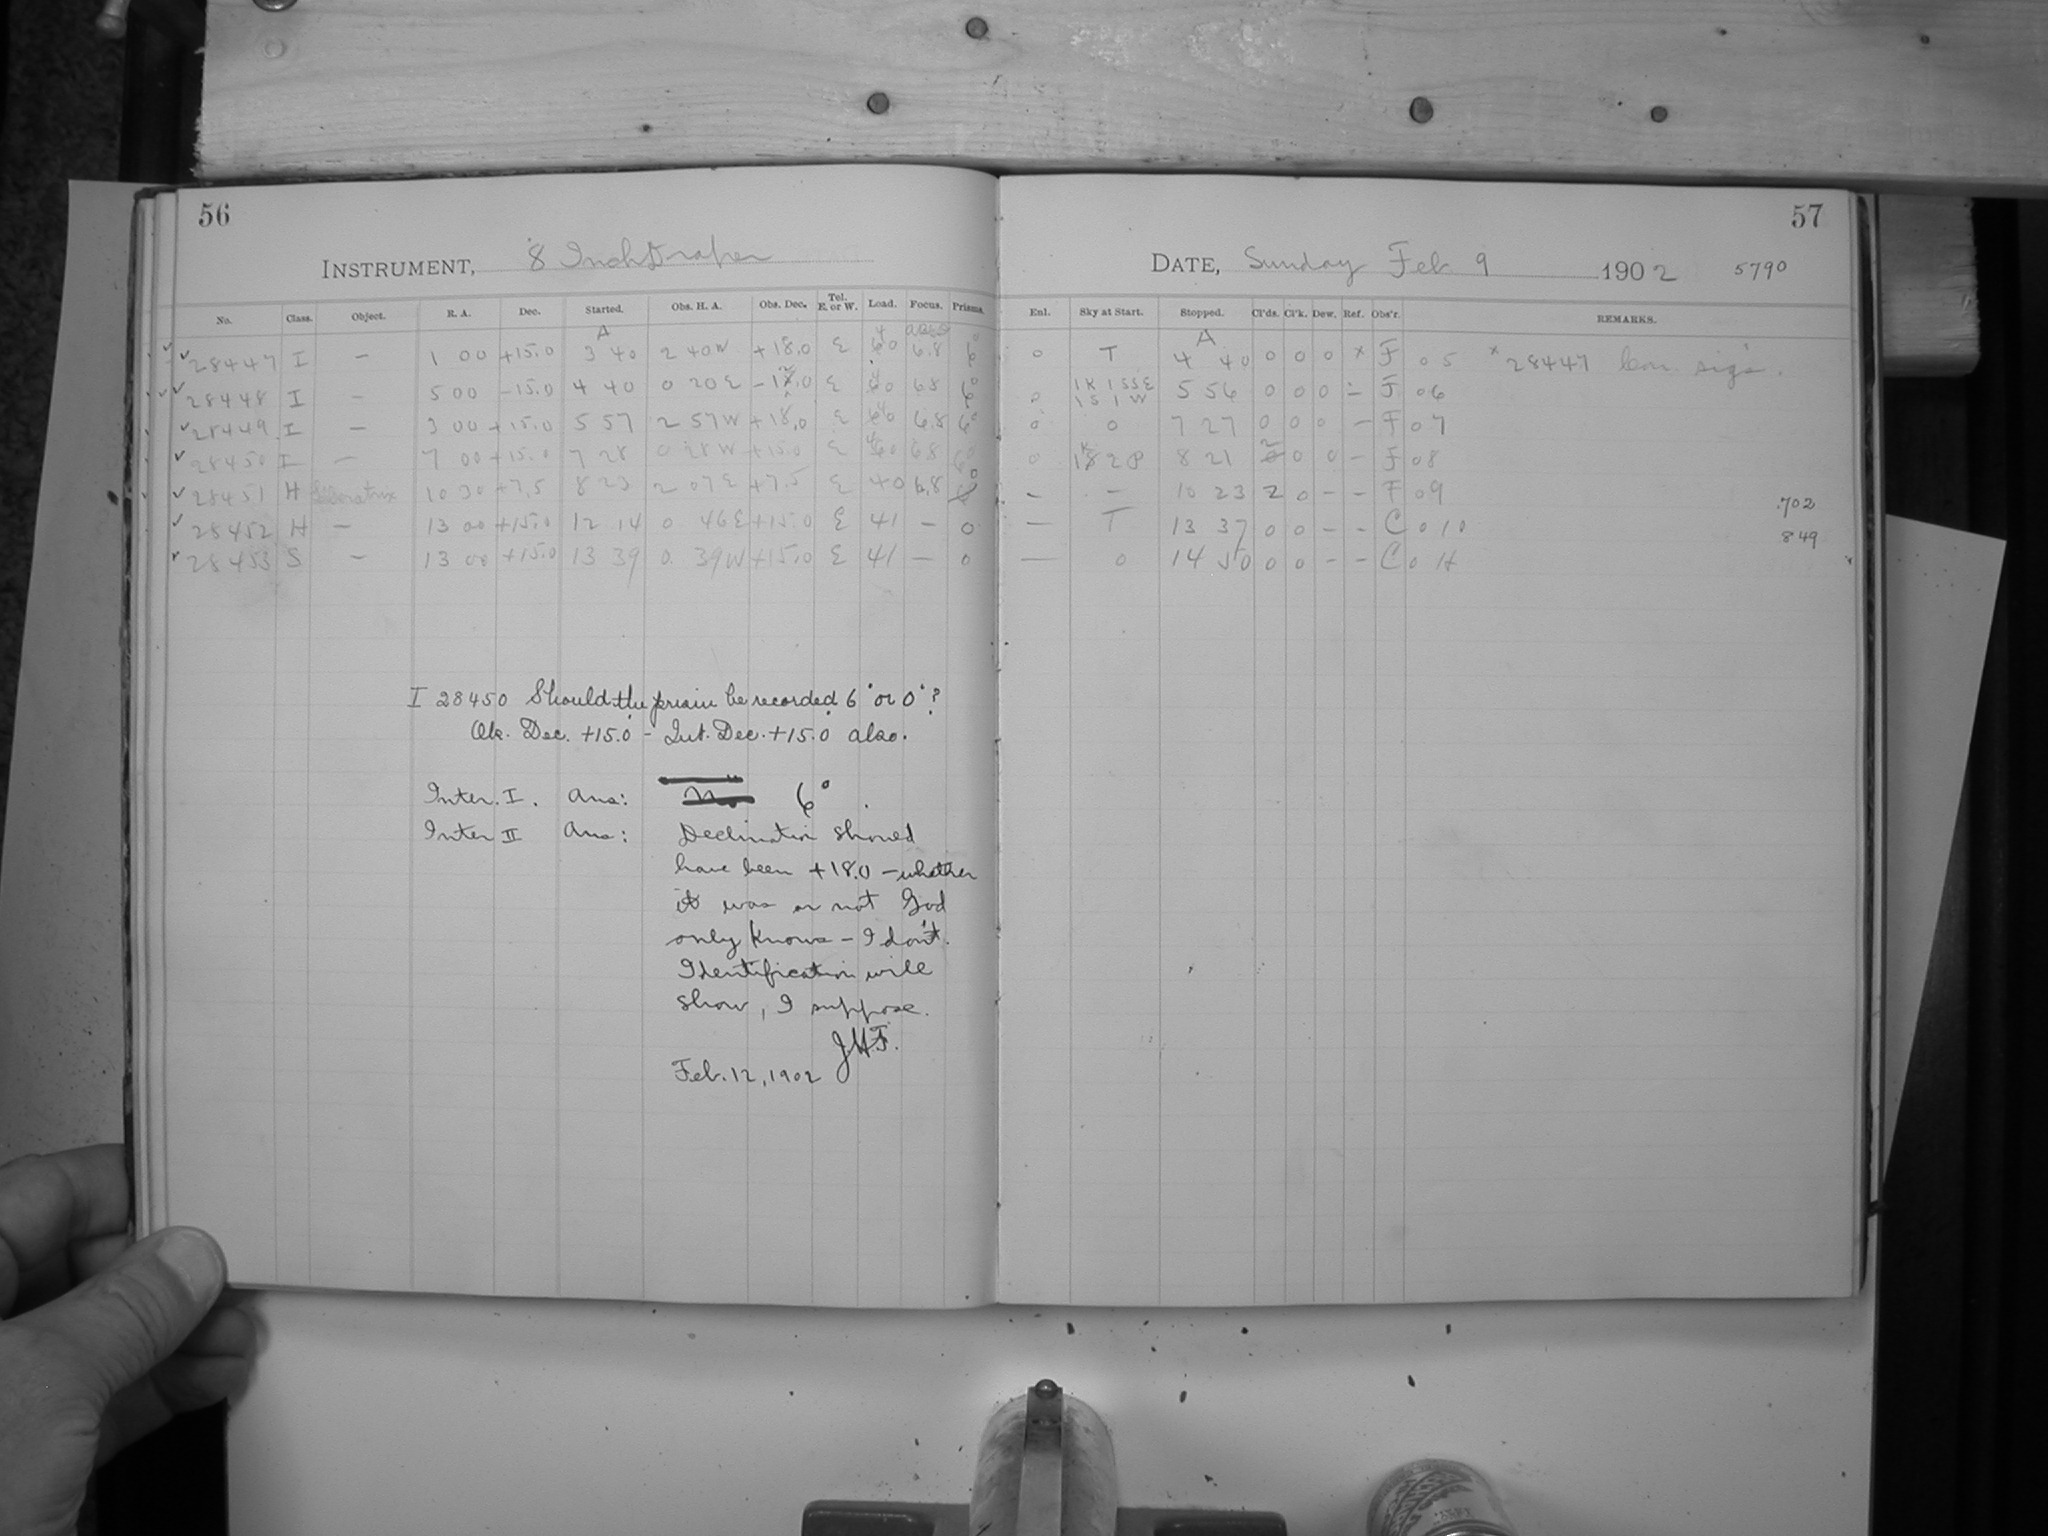 56
INSTRUMENT, 8 Inch Draper
No. Class. Object. R. A. Dec. Started. Obs. H. A. Obs. Dec. Tel. E. or W. Load. Focus. Prisms.
28447 I — 1 00 +15.0 3 40 2 40W +18.0 E 60 6.8 6
28448 I — 5 00 -15.0 4 40 0 20E E 60 6.8 6
28449 I — 3 00 +15.0 5 57 2 57W +18.0 E 6.8 6°
28450 I — 7 00 +15.0 7 28 0 28W +15.0 E 60 6.8
28451 H 10 30 +7.5 8 23 2 07E +7.5 E 40 6.8
28452 H — 13 00 +15.0 12 14 0 46E +15.0 E 41 — 0
28453 S — 13 00 +15.0 13 39 0 39W +15.0 E 41 — 0
I 28450 Should the prism be recorded 6° or 0°?
Obs. Dec. +15.0 - Int. Dec. +15.0 also.
Inter. I. Ans: 6°
Inter II Ans: Declination should
have been +18.0 — whether
it was or not God
only knows — I don't.
Identification will
show, I suppose.
J.H.F.
Feb. 12, 1902
57
DATE, Sunday Feb 9 1902 5790
Enl. Sky at Start. Stopped. Cl'ds. Cl'k. Dew. Ref. Obs'r. REMARKS.
0 T 4 40 0 0 0 x F 05 x 28447 Con. sig's.
0 1K 1SSE 1S 1W 5 56 0 0 0 F 06
0 0 7 27 0 0 0 — F 07
0 8 21 0 0 — F 08
— — 10 23 2 0 — — F 09
.702
— T 13 37 0 0 — — C 010
849
— 0 14 50 0 0 — — C 011